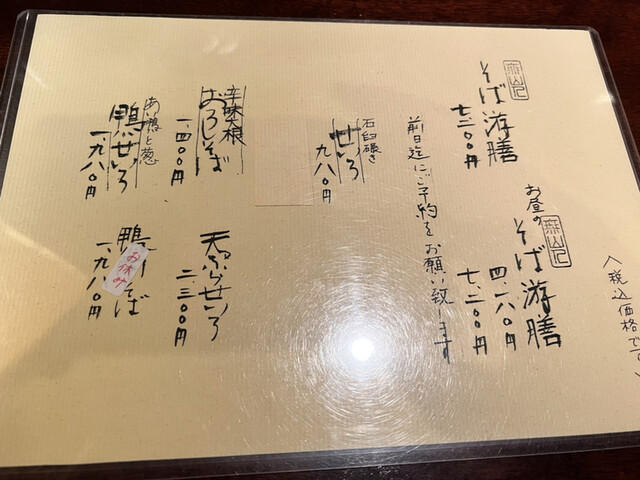 そば游膳
七.二〇〇円
お昼の
そば游膳
四.一八〇円
七.二〇〇円
前日迄にご予約をお願い致します
石臼碾き
せいろ
九八〇円
辛味大根
おろしそば
一.四〇〇円
天ぷらせいろ
二.三〇〇円
あい鴨と葱
鴨せいろ
一.九八〇円
鴨 そば
お休み
一.九八〇円
税込価格です